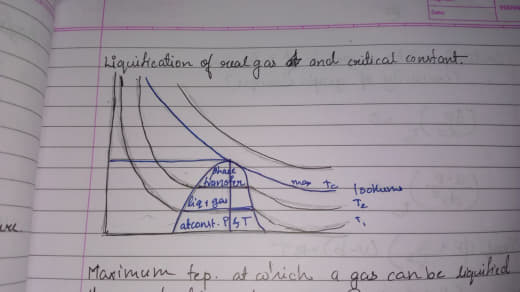 Date:
Liquification of real gas and critical constant.
phase
transfer
liq + gas
at const. P & T
max Tc
T2
T1
Maximum tep. at which a gas can be liquified